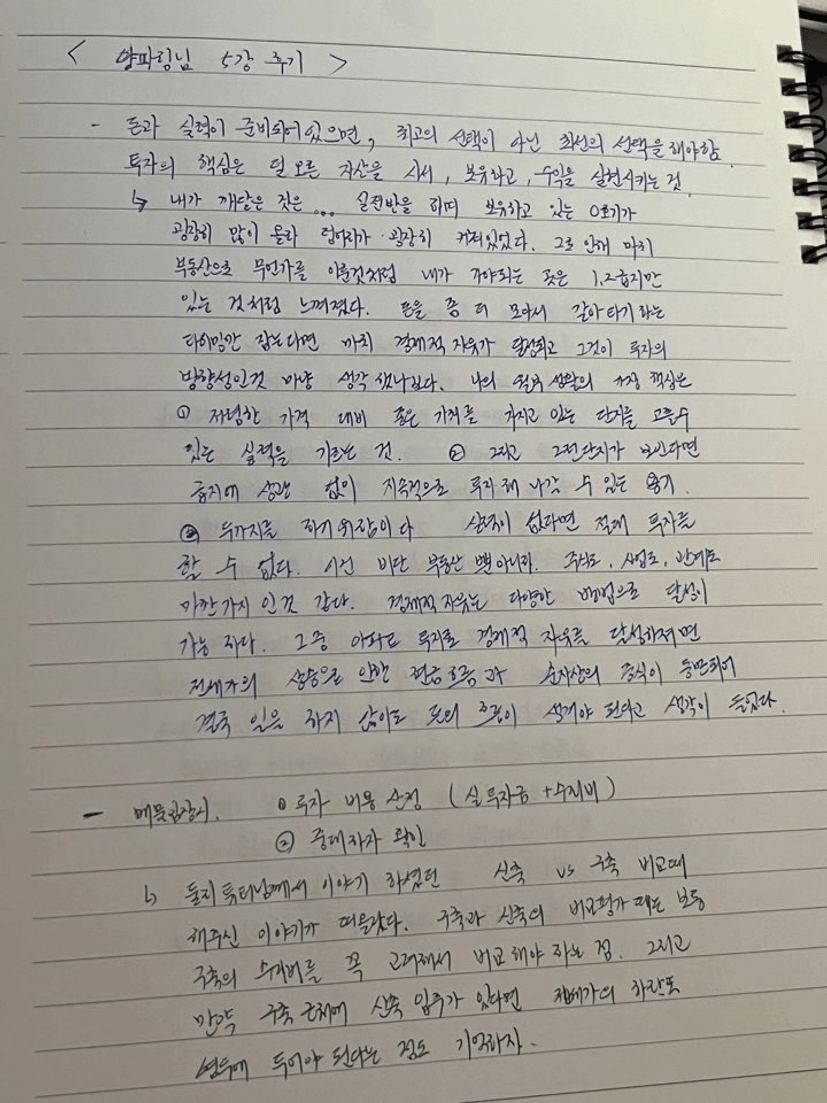 < 양파링님 5강 후기 >
- 돈과 실력이 준비되어 있으면, 최고의 선택이 아닌 최선의 선택을 해야함.
투자의 핵심은 덜 오른 자산을 사서, 보유하고, 수익을 실현시키는 것.
↳ 내가 깨달은 것은 ... 실전반을 하며 보유하고 있는 0호기가
굉장히 많이 올라 덩어리가 굉장히 커져있었다. 그로 인해 마치
부동산으로 무언가를 이룬것처럼 내가 가야되는 곳은 1,2급지만
있는 것처럼 느껴졌다. 돈을 좀 더 모아서 갈아타기라는
타이밍만 잡는다면 마치 경제적 자유가 달성되고 그것이 투자의
방향성인것 마냥 생각했나보다. 나의 월부 생활의 가장 핵심은
① 저렴한 가격 대비 좋은 가치를 가지고 있는 단지를 고를수
있는 실력을 기르는 것. ② 그리고 그런단지가 보인다면
급지에 상관 없이 지속적으로 투자해 나갈 수 있는 용기.
두가지를 하기 위함이다 실력이 없다면 절대 투자를
할 수 없다. 이건 비단 부동산 뿐아니라. 주식도, 사업도, 관계도
마찬가지 인것 같다. 경제적 자유는 다양한 방법으로 달성이
가능하다. 그중 아파트 투자로 경제적 자유를 달성하려면
전세가의 상승으로 인한 현금흐름과 순자산의 증식이 동반되어
결국 일을 하지 않아도 돈의 흐름이 생겨야 된다고 생각이 들었다.
- 매물임장시. ① 투자 비용 산정 (실투자금 + 수리비)
② 중대하자 확인
↳ 돌지튜터님께서 이야기 하셨던 신축 vs 구축 비교때
해주신 이야기가 떠올랐다. 구축과 신축의 비교평가 때는 보통
구축의 수리비를 꼭 고려해서 비교해야 하는 점. 그리고
만약 구축 근처에 신축 입주가 있다면 전세가의 하락도
염두에 두어야 된다는 점도 기억하자.